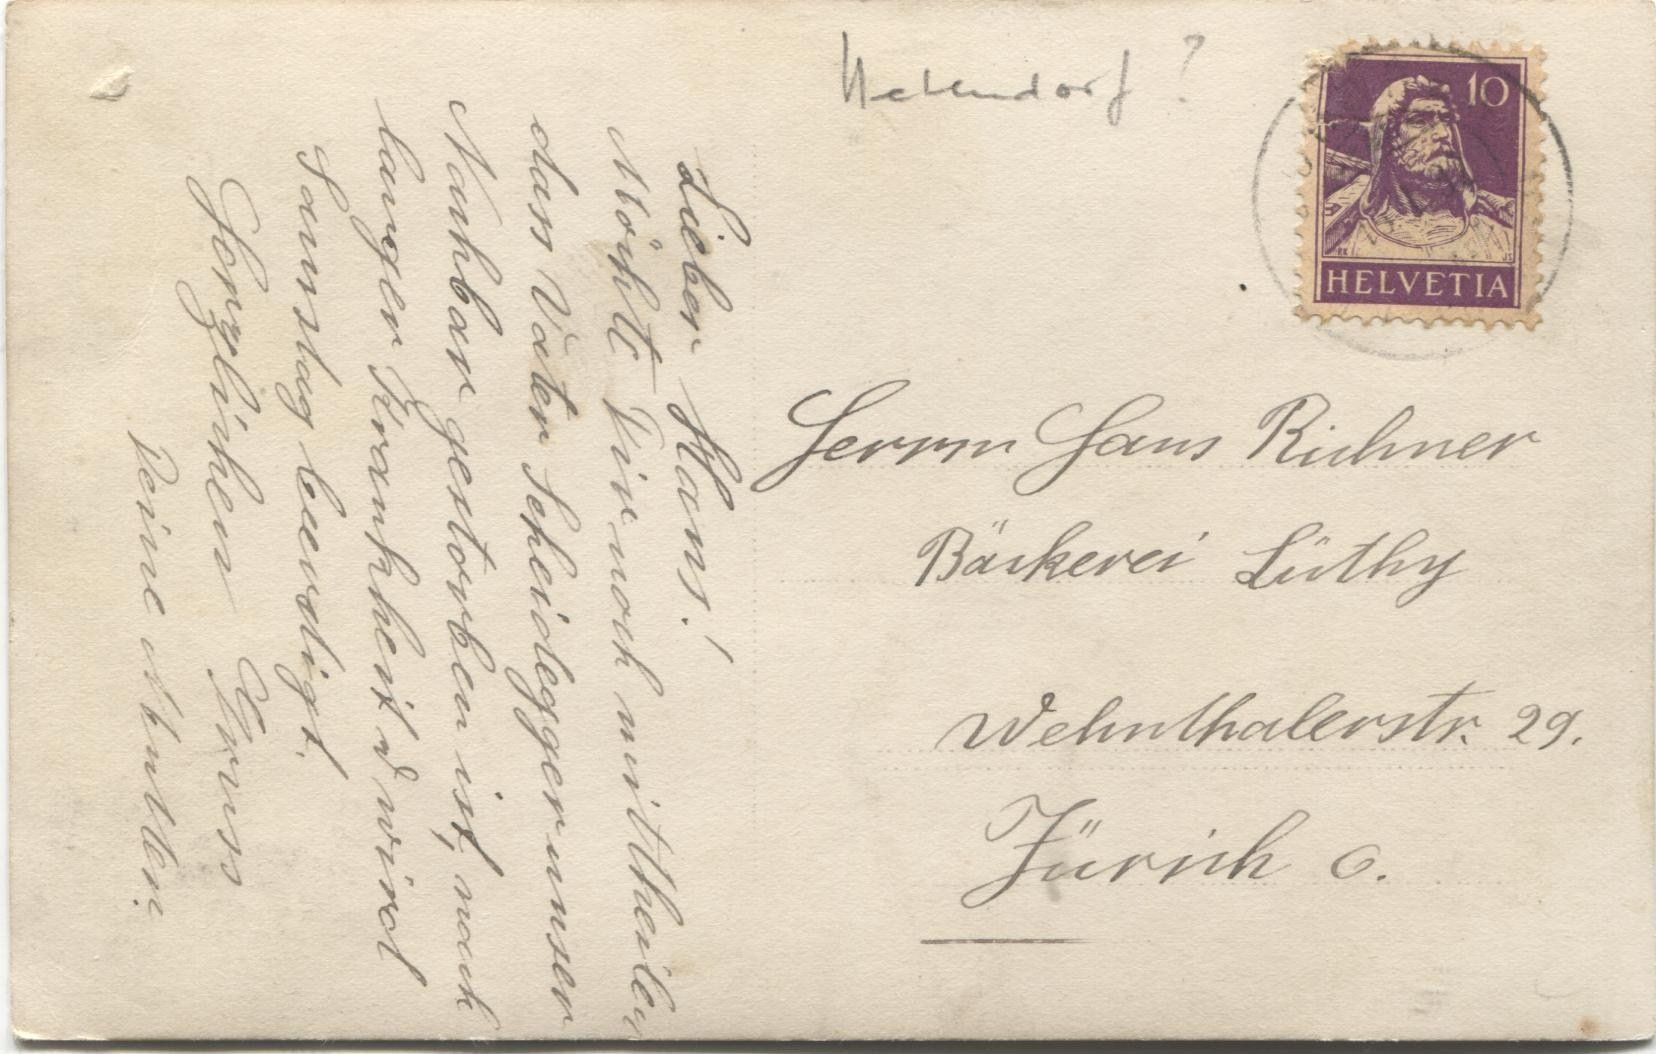 Lieber Hans!
Möchte Dir noch mittheilen
dass Vater Scheidegger unser
Nachbar gestorben ist, nach
langer Krankheit & wird
Samstag beerdigt.
Herzlichen Gruss
Deine Mutter.
?
10
HELVETIA
Herrn Hans Richner
Bäckerei Lüthy
Wehnthalerstr. 29.
Zürich 6.